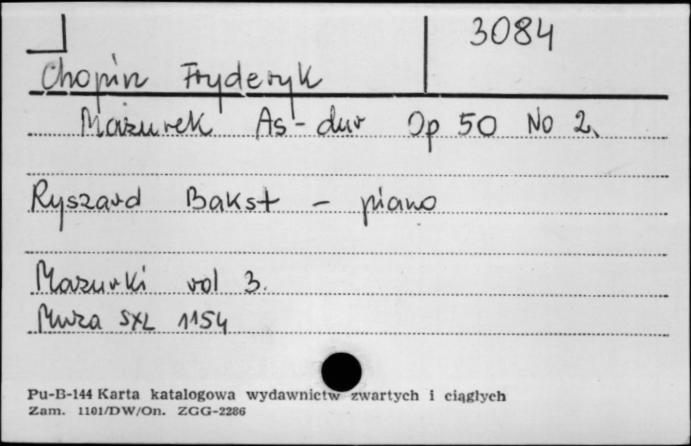 3084
Chopin Fryderyk
Mazurek As-dur Op 50 No 2.
Ryszard Bakst - piano
Mazurki vol 3.
Muza SXL 1154
Pu-B-144 Karta katalogowa wydawnictw zwartych i ciągłych
Zam. 1101/DW/On. ZGG-2286